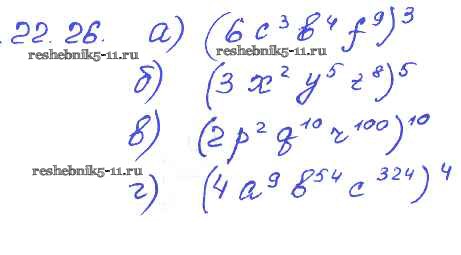 22.26. а) (6 c³ b⁴ f⁹)³
reshebnik5-11.ru reshebnik5-11.ru
б) (3 x² y⁵ z⁸)⁵
в) (2 p² q¹⁰ r¹⁰⁰)¹⁰
reshebnik5-11.ru
г) (4 a⁹ b⁵⁴ c³²⁴)⁴